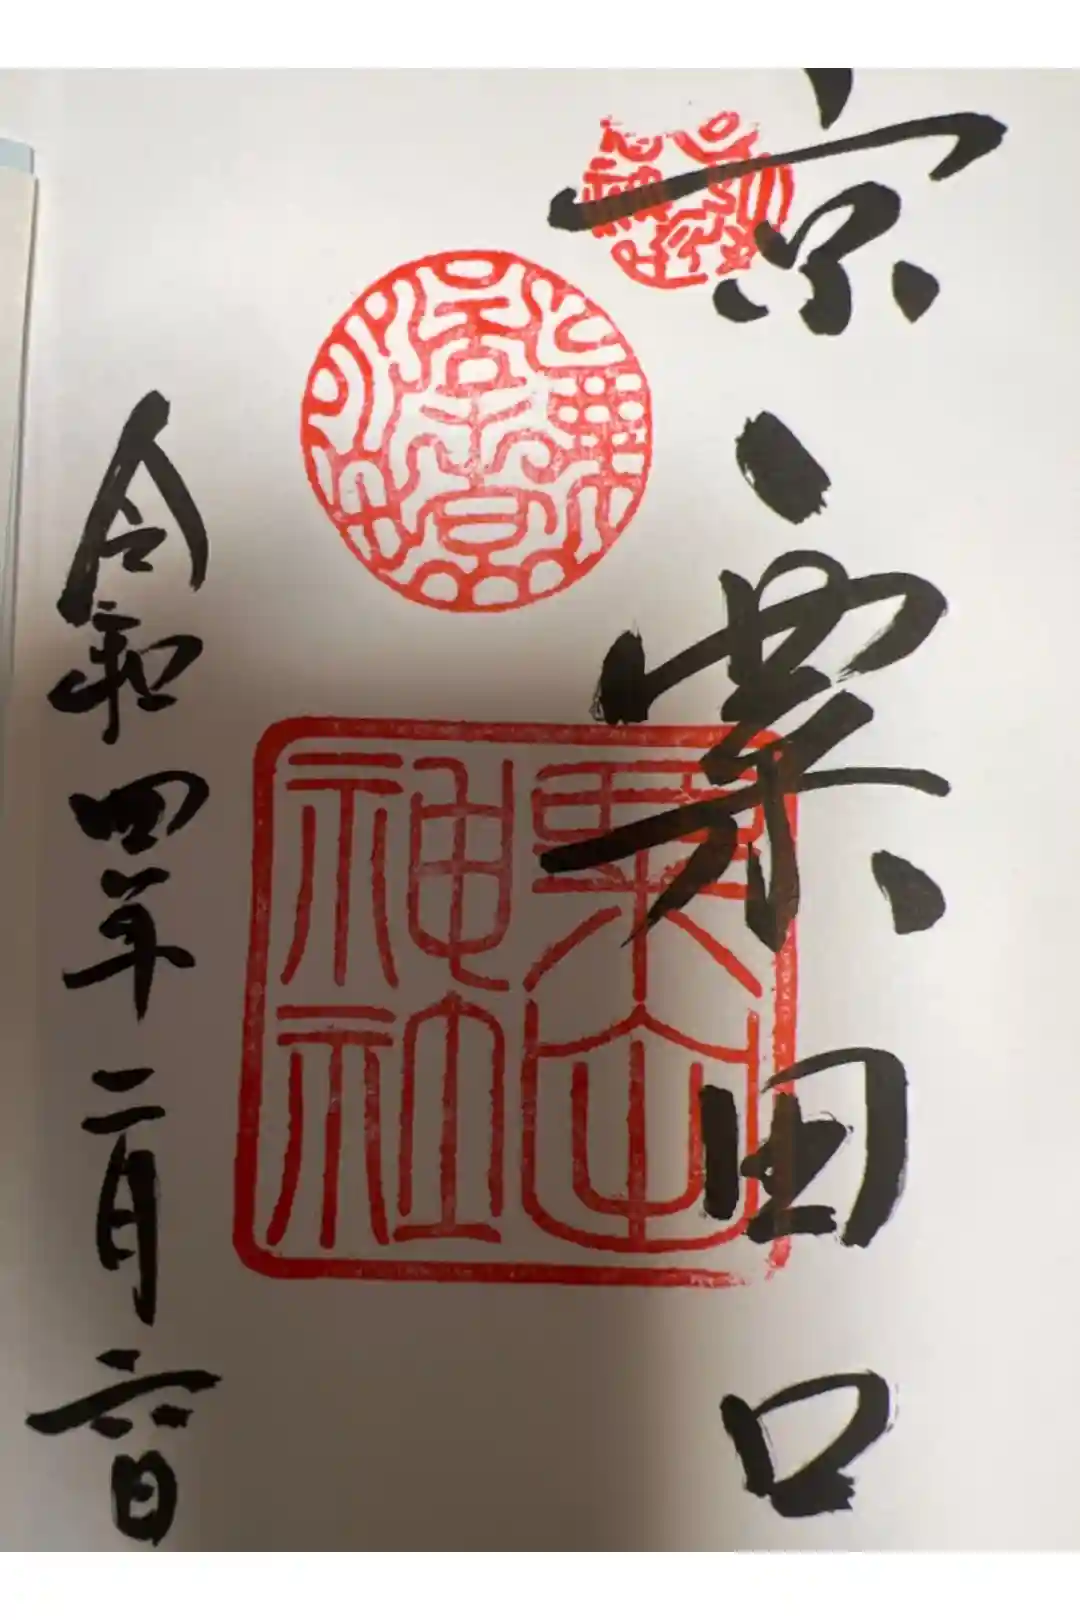 京・粟田口
粟田神社
令和四年二月六日